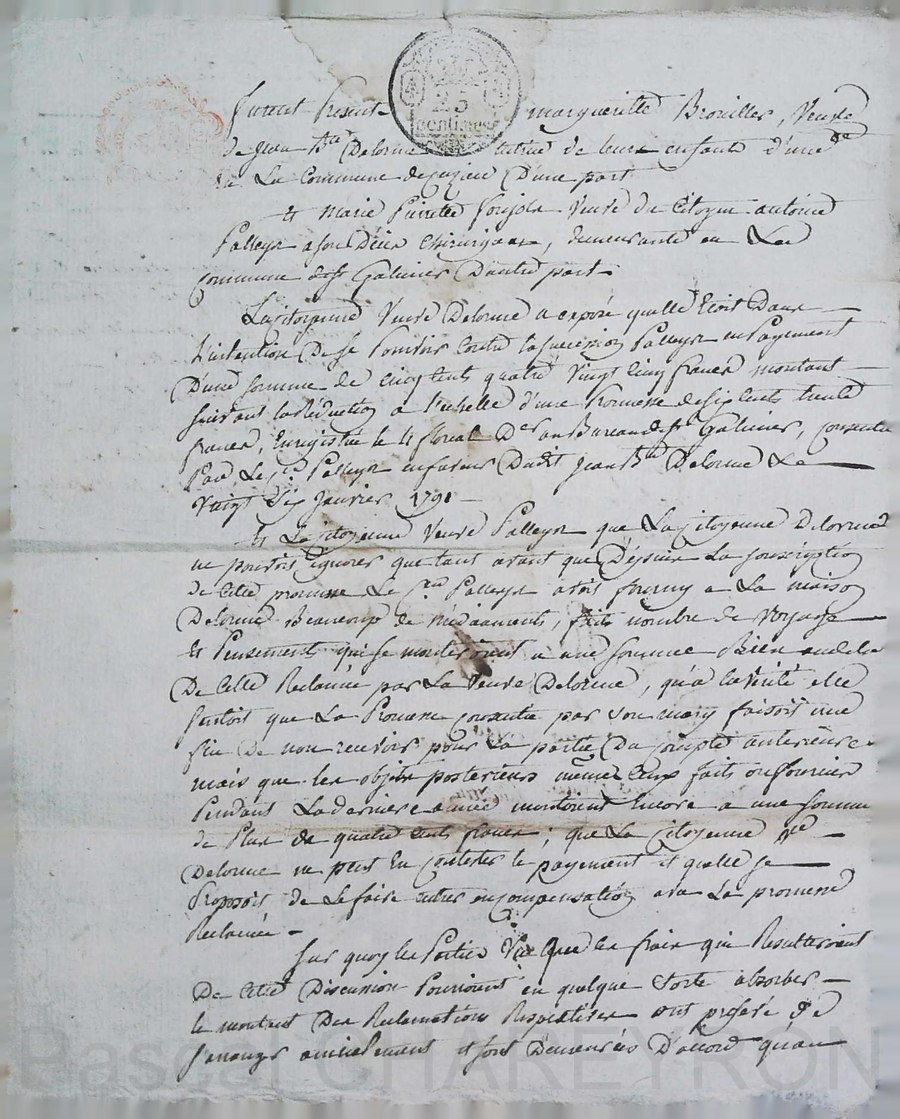 furent Présents margueritte Brouiller, Veuve
25
centimes
de jean Bte Delorme tutrice de leurs enfants d'une de
en La Commune de cuzieu D'une part
Et marie Pierrette Veuve du Citoyen antoine
Palleyr a son Décès chirurgien, demeurante en La
Commune de St Galmier D'autre part
La citoyenne Veuve Delorme a exposé qu'elle Etoit Dans
L'intention De se Pourvoir Contre la succession Palleyr en Payement
D'une somme de cinq cents quatre Vingt cinq francs montant
suivant la Réduction a L'echelle d'une Promesse de six cents trente
francs, Enregistrée le 4 floreal Der au Bureau de St Galmier, consentie
Par Le Sr Palleyr en faveur Dudit jean Bte Delorme Le
Vingt Six janvier 1791
Et La citoyenne Veuve Palleyr que La Citoyenne Delorme
ne pouvoit ignorer que tant avant que Depuis La souscription
de Cette promesse Le Palleyr avoit fourny a La maison
Delorme Beaucoup de médicaments, faits nombre de Voyage
Et Pensements qui se monteroient a une somme Bien audela
De Celle Reclamée par La Veuve Delorme, qu'a la verité elle
sentoit que La Promesse consentie par son mary faisoit une
fin De non recevoir pour La partie Du compte anterieure
mais que les objets posterieurs même Ceux faits ou fournis
Pendant La derniere année montoient Encore a une somme
de Plus de quatre cents francs ; que La Citoyenne Ve
Delorme ne peut En Contester le payement et qu'elle se
Proposoit de Le faire entrer en compensation avec La promesse
Reclamée
Sur quoy les Parties Vu Que les frais qui Resulteroient
De Cette Discussion Pourroient en quelque sorte absorber
le montant Des Reclamations Respectives ont preferé De
s'arranger amicalement et sont Demeurées D'accord qu'au
Pascal CHAREYRON